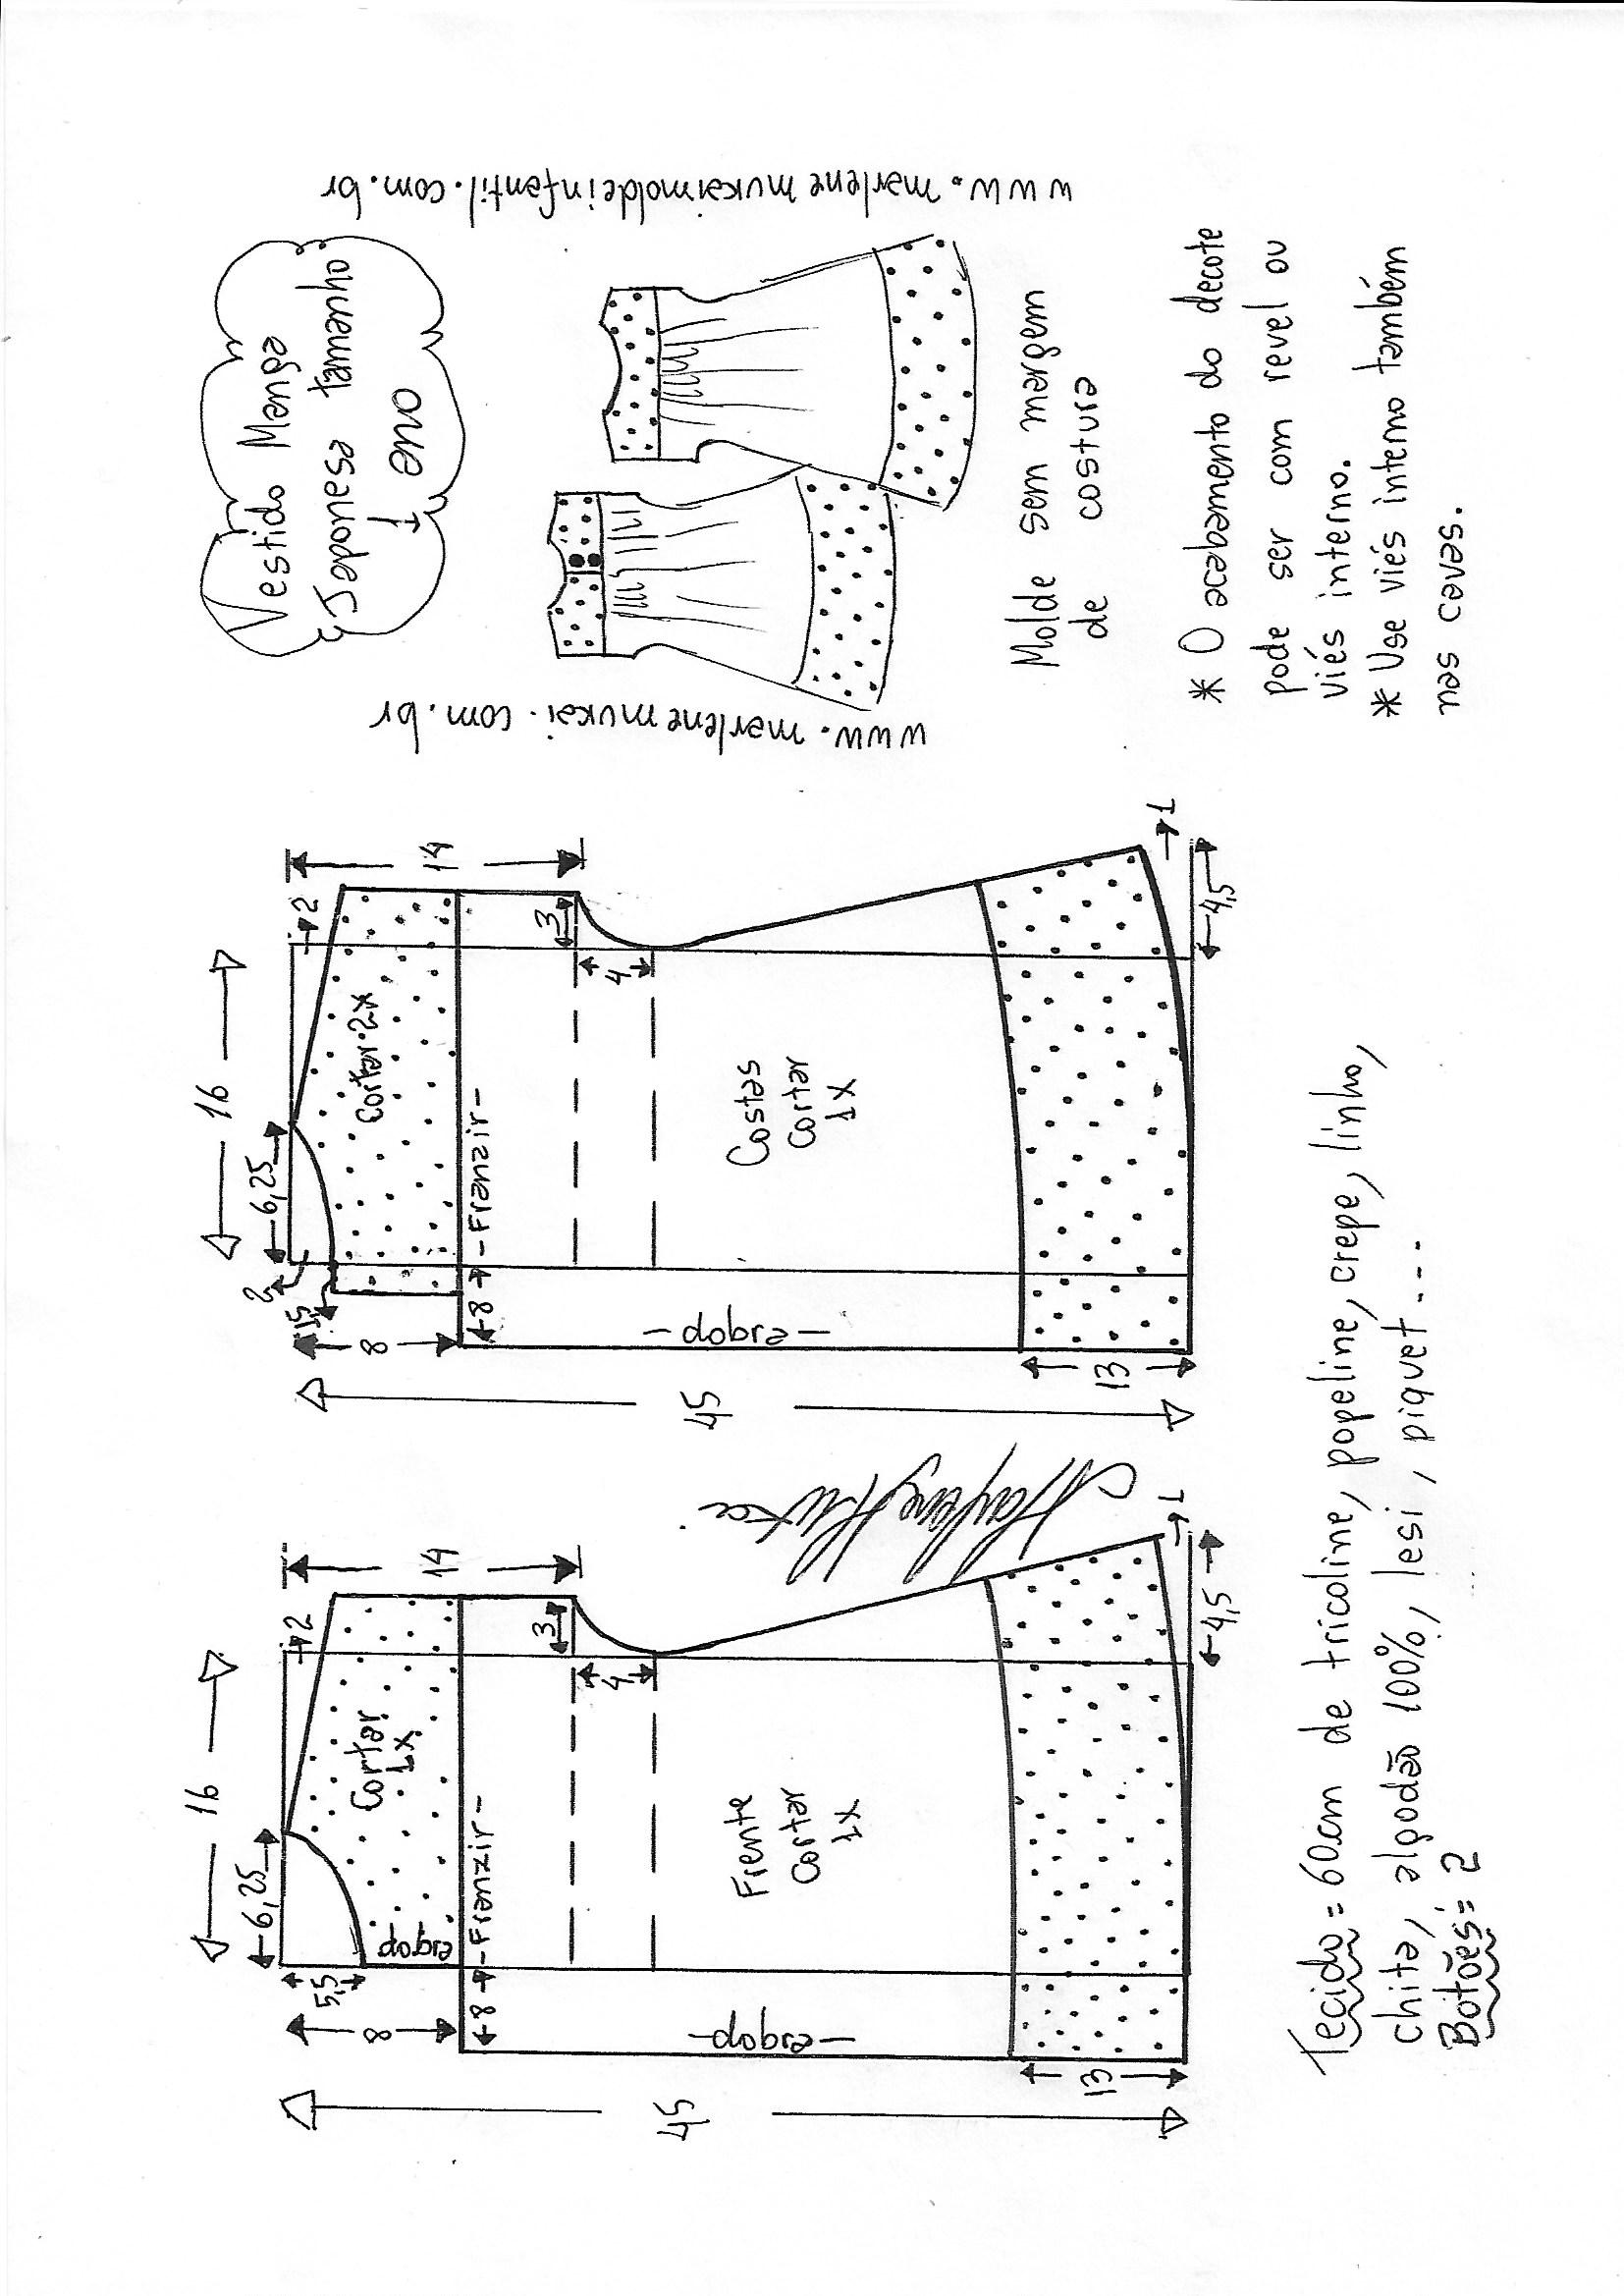 Vestido Manga
Japonesa tamanho
1 ano
www.marlenemukai.com.br
www.marlenemukaimoldeinfantil.com.br
Molde sem margem
de costura
* O acabamento do decote
pode ser com revel ou
viés interno.
* Use viés interno também
nas cavas.
16
6,25
2
14
5,5
8
Cortar
1x
dobra
3
4
8
-Franzir-
Frente
Cortar
1x
-dobra-
45
13
4,5
1
Marlene Mukai
16
6,25
2
2
14
1,5
8
Cortar 2x
3
4
8
-Franzir-
Costas
Cortar
1x
-dobra-
45
13
4,5
1
Tecido = 60cm de tricoline, popeline, crepe, linho,
chita, algodão 100%, lesi, piquet...
Botões = 2